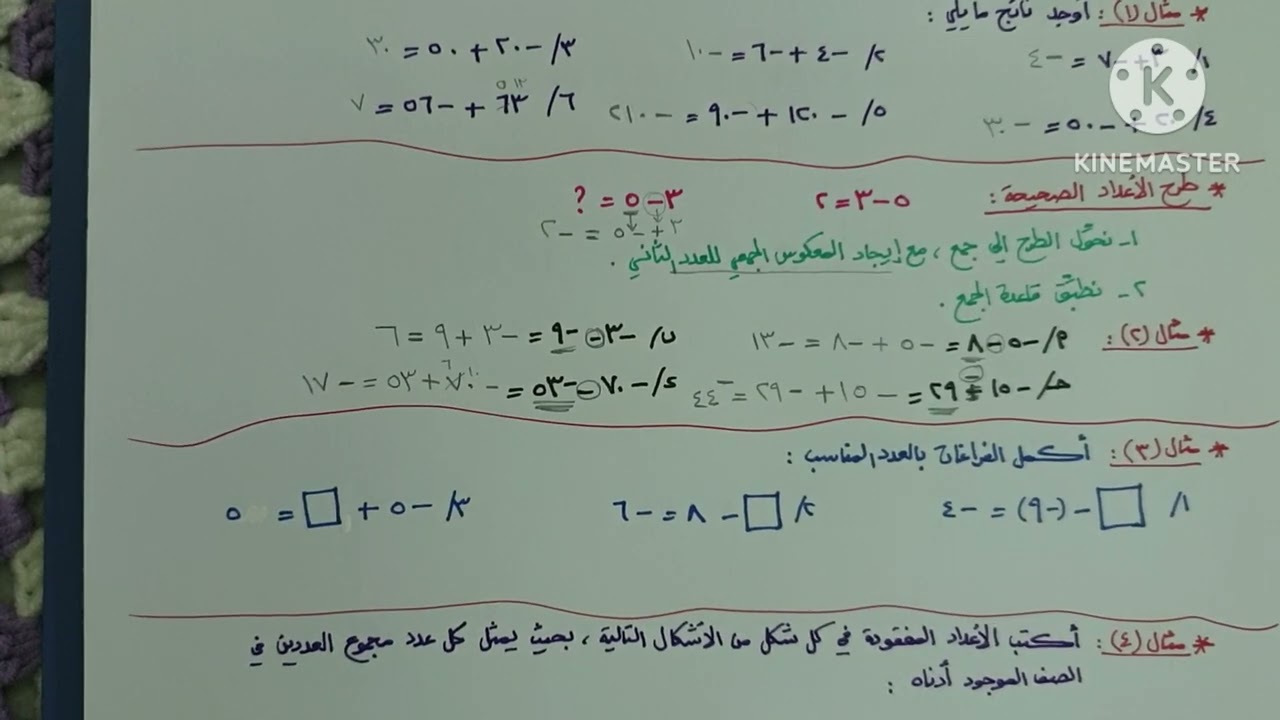 * مثال (١) : أوجد ناتج ما يلي :
١/ ٣ + -٧ = -٤   ٢/ -٤ + -٦ = -١٠   ٣/ -٢٠ + ٥٠ = ٣٠
٤/ ٢٠ + -٥٠ = -٣٠   ٥/ -١٢٠ + -٩٠ = -٢١٠   ٦/ ٦٣ + -٥٦ = ٧
٥ ١٣
KINEMASTER
* طرح الأعداد الصحيحة :   ٥ - ٣ = ٢   ٣ - ٥ = ?
٣ + -٥ = -٢
١- نحوّل الطرح إلى جمع ، مع إيجاد المعكوس الجمعي للعدد الثاني .
٢- نطبّق قاعدة الجمع .
* مثال (٢) :   -٥ - ٨ = -٥ + -٨ = -١٣   ب/ -٣ - -٩ = -٣ + ٩ = ٦
ج/ -١٥ - ٢٩ = -١٥ + -٢٩ = -٤٤   د/ -٧٠ - -٥٣ = -٧٠ + ٥٣ = -١٧
* مثال (٣) : أكمل الفراغات بالعدد المناسب :
١/ □ - (-٩) = -٤   ٢/ □ - ٨ = -٦   ٣/ -٥ + □ = ٥
* مثال (٤) : أكتب الأعداد المفقودة في كل شكل من الأشكال التالية ، بحيث يمثل كل عدد مجموع العددين في
الصف الموجود أدناه :